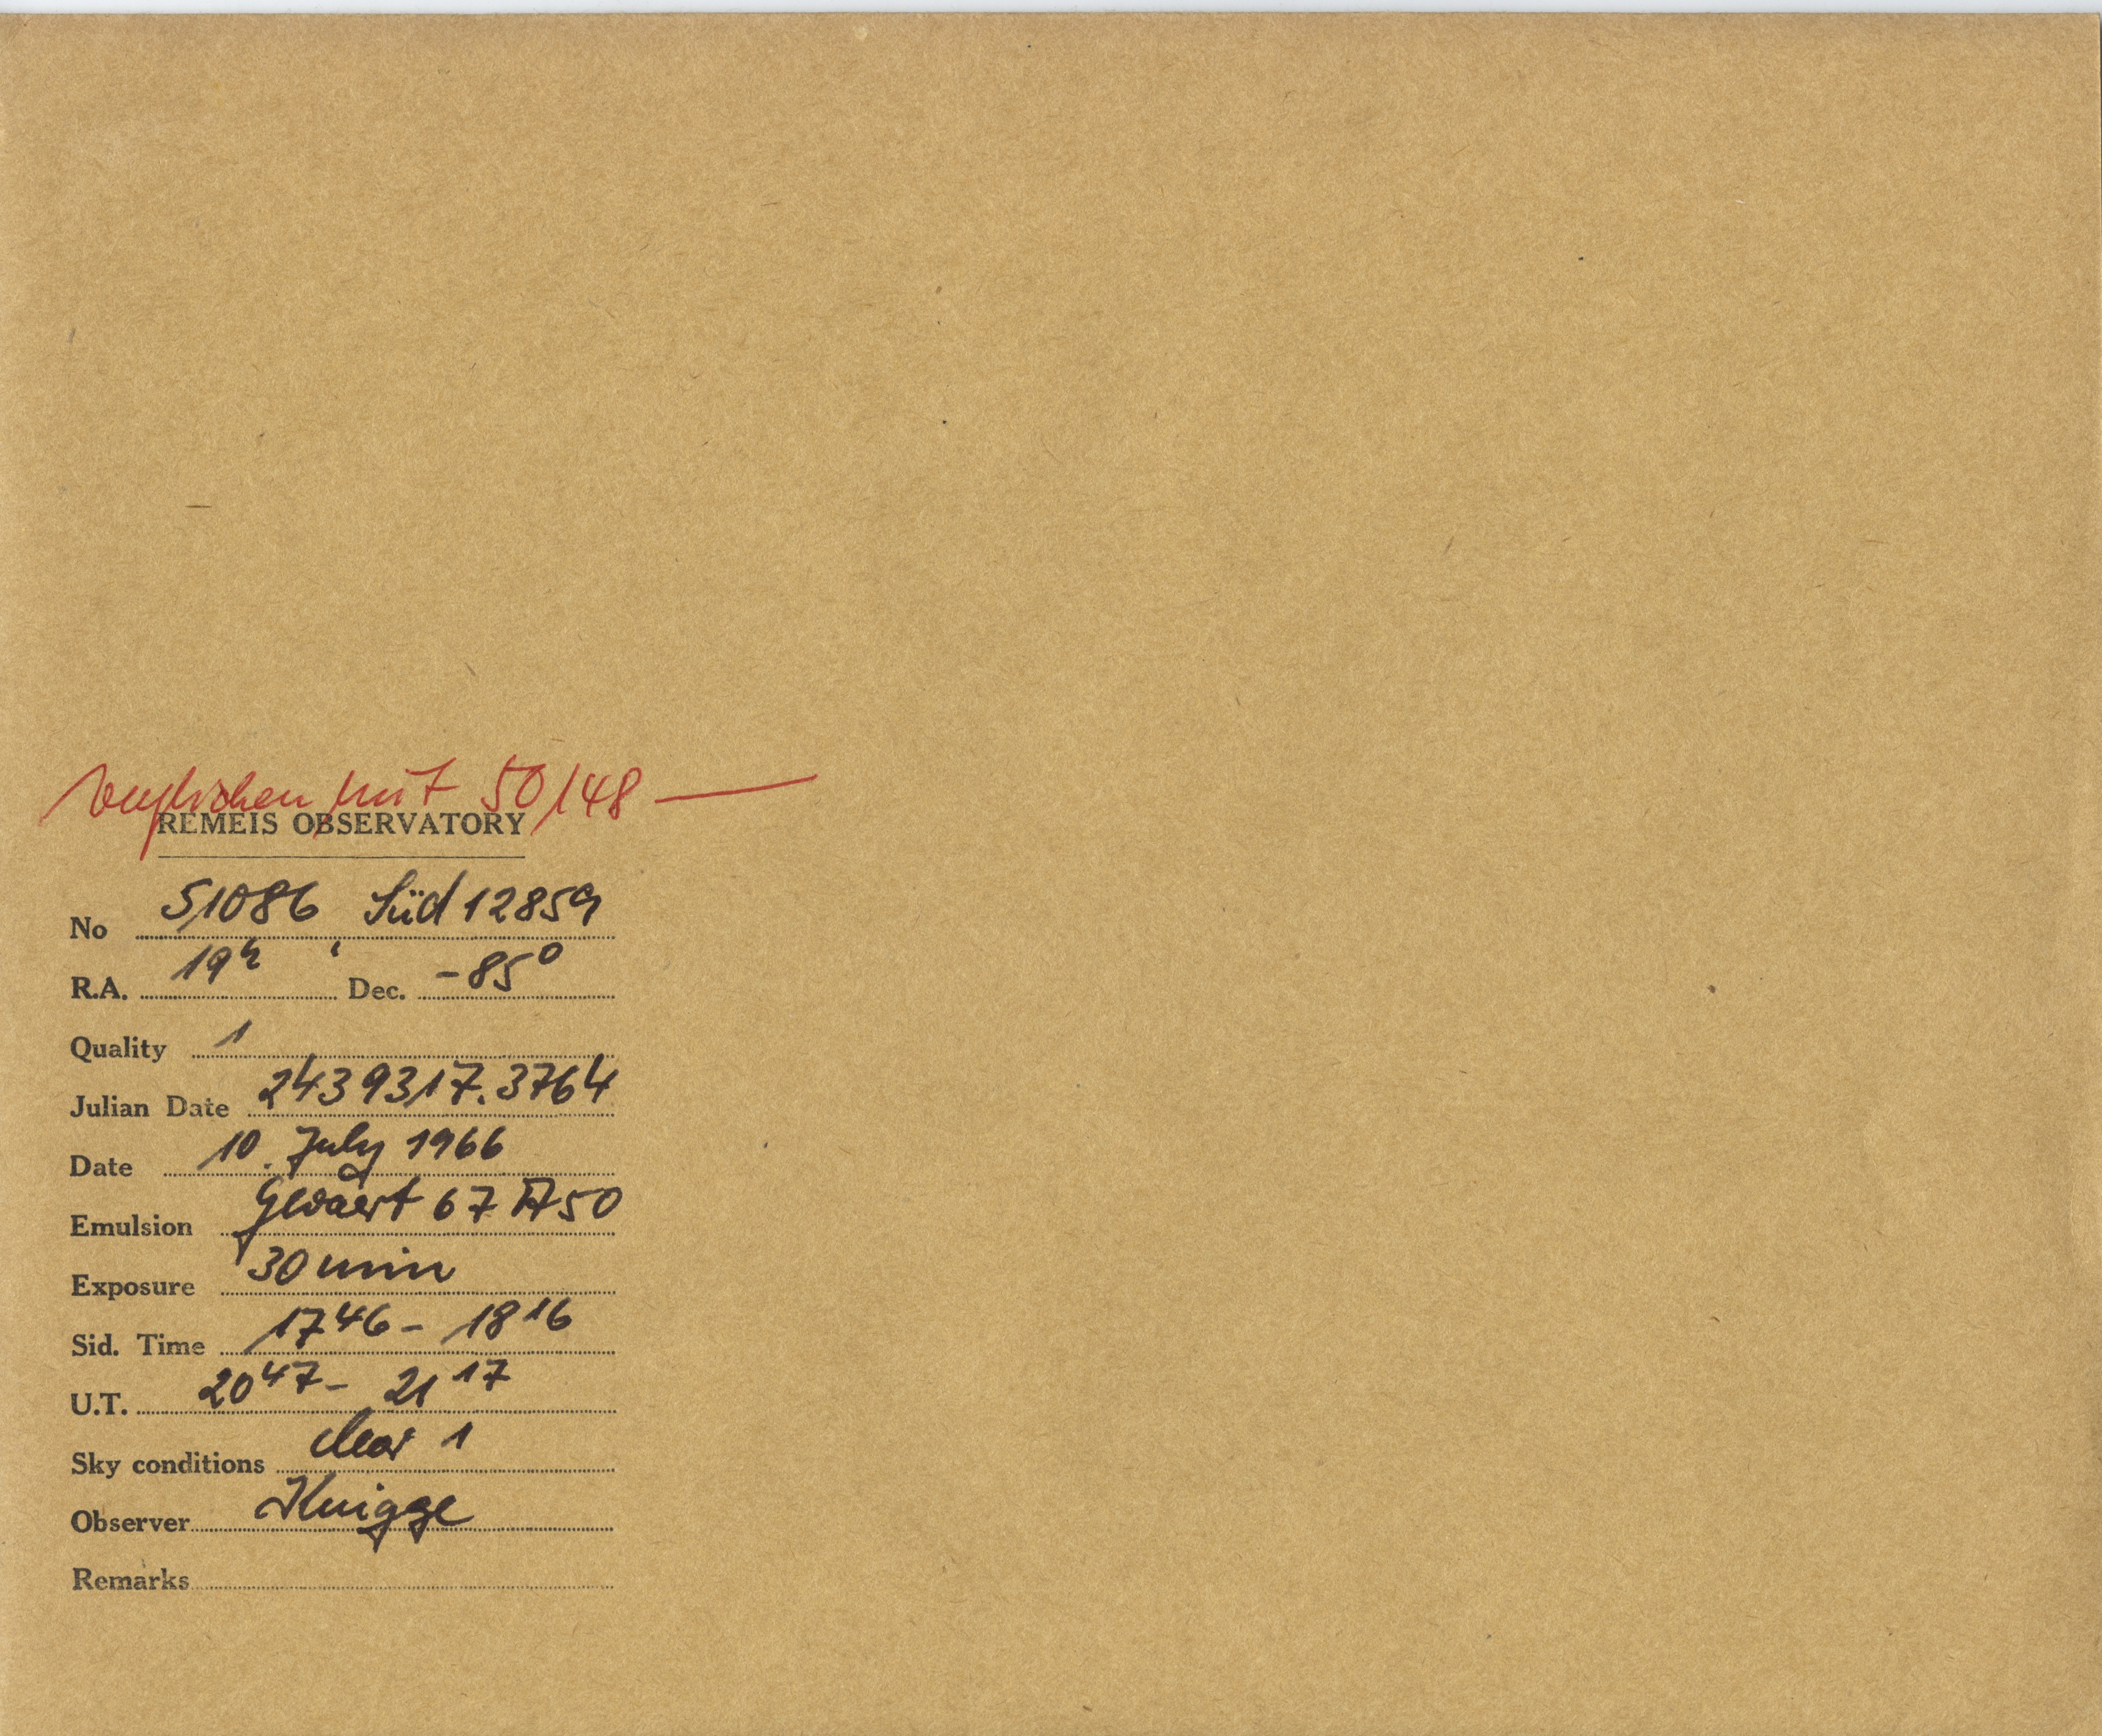 verglichen mit 50/48 —
REMEIS OBSERVATORY
No 51086 Süd 12859
R.A. 19h ' Dec. -85°
Quality 1
Julian Date 2439317.3764
Date 10. July 1966
Emulsion Gevaert 67 A50
Exposure 30 min
Sid. Time 17 46 - 18 16
U.T. 20 47 - 21 17
Sky conditions clear 1
Observer Knigge
Remarks